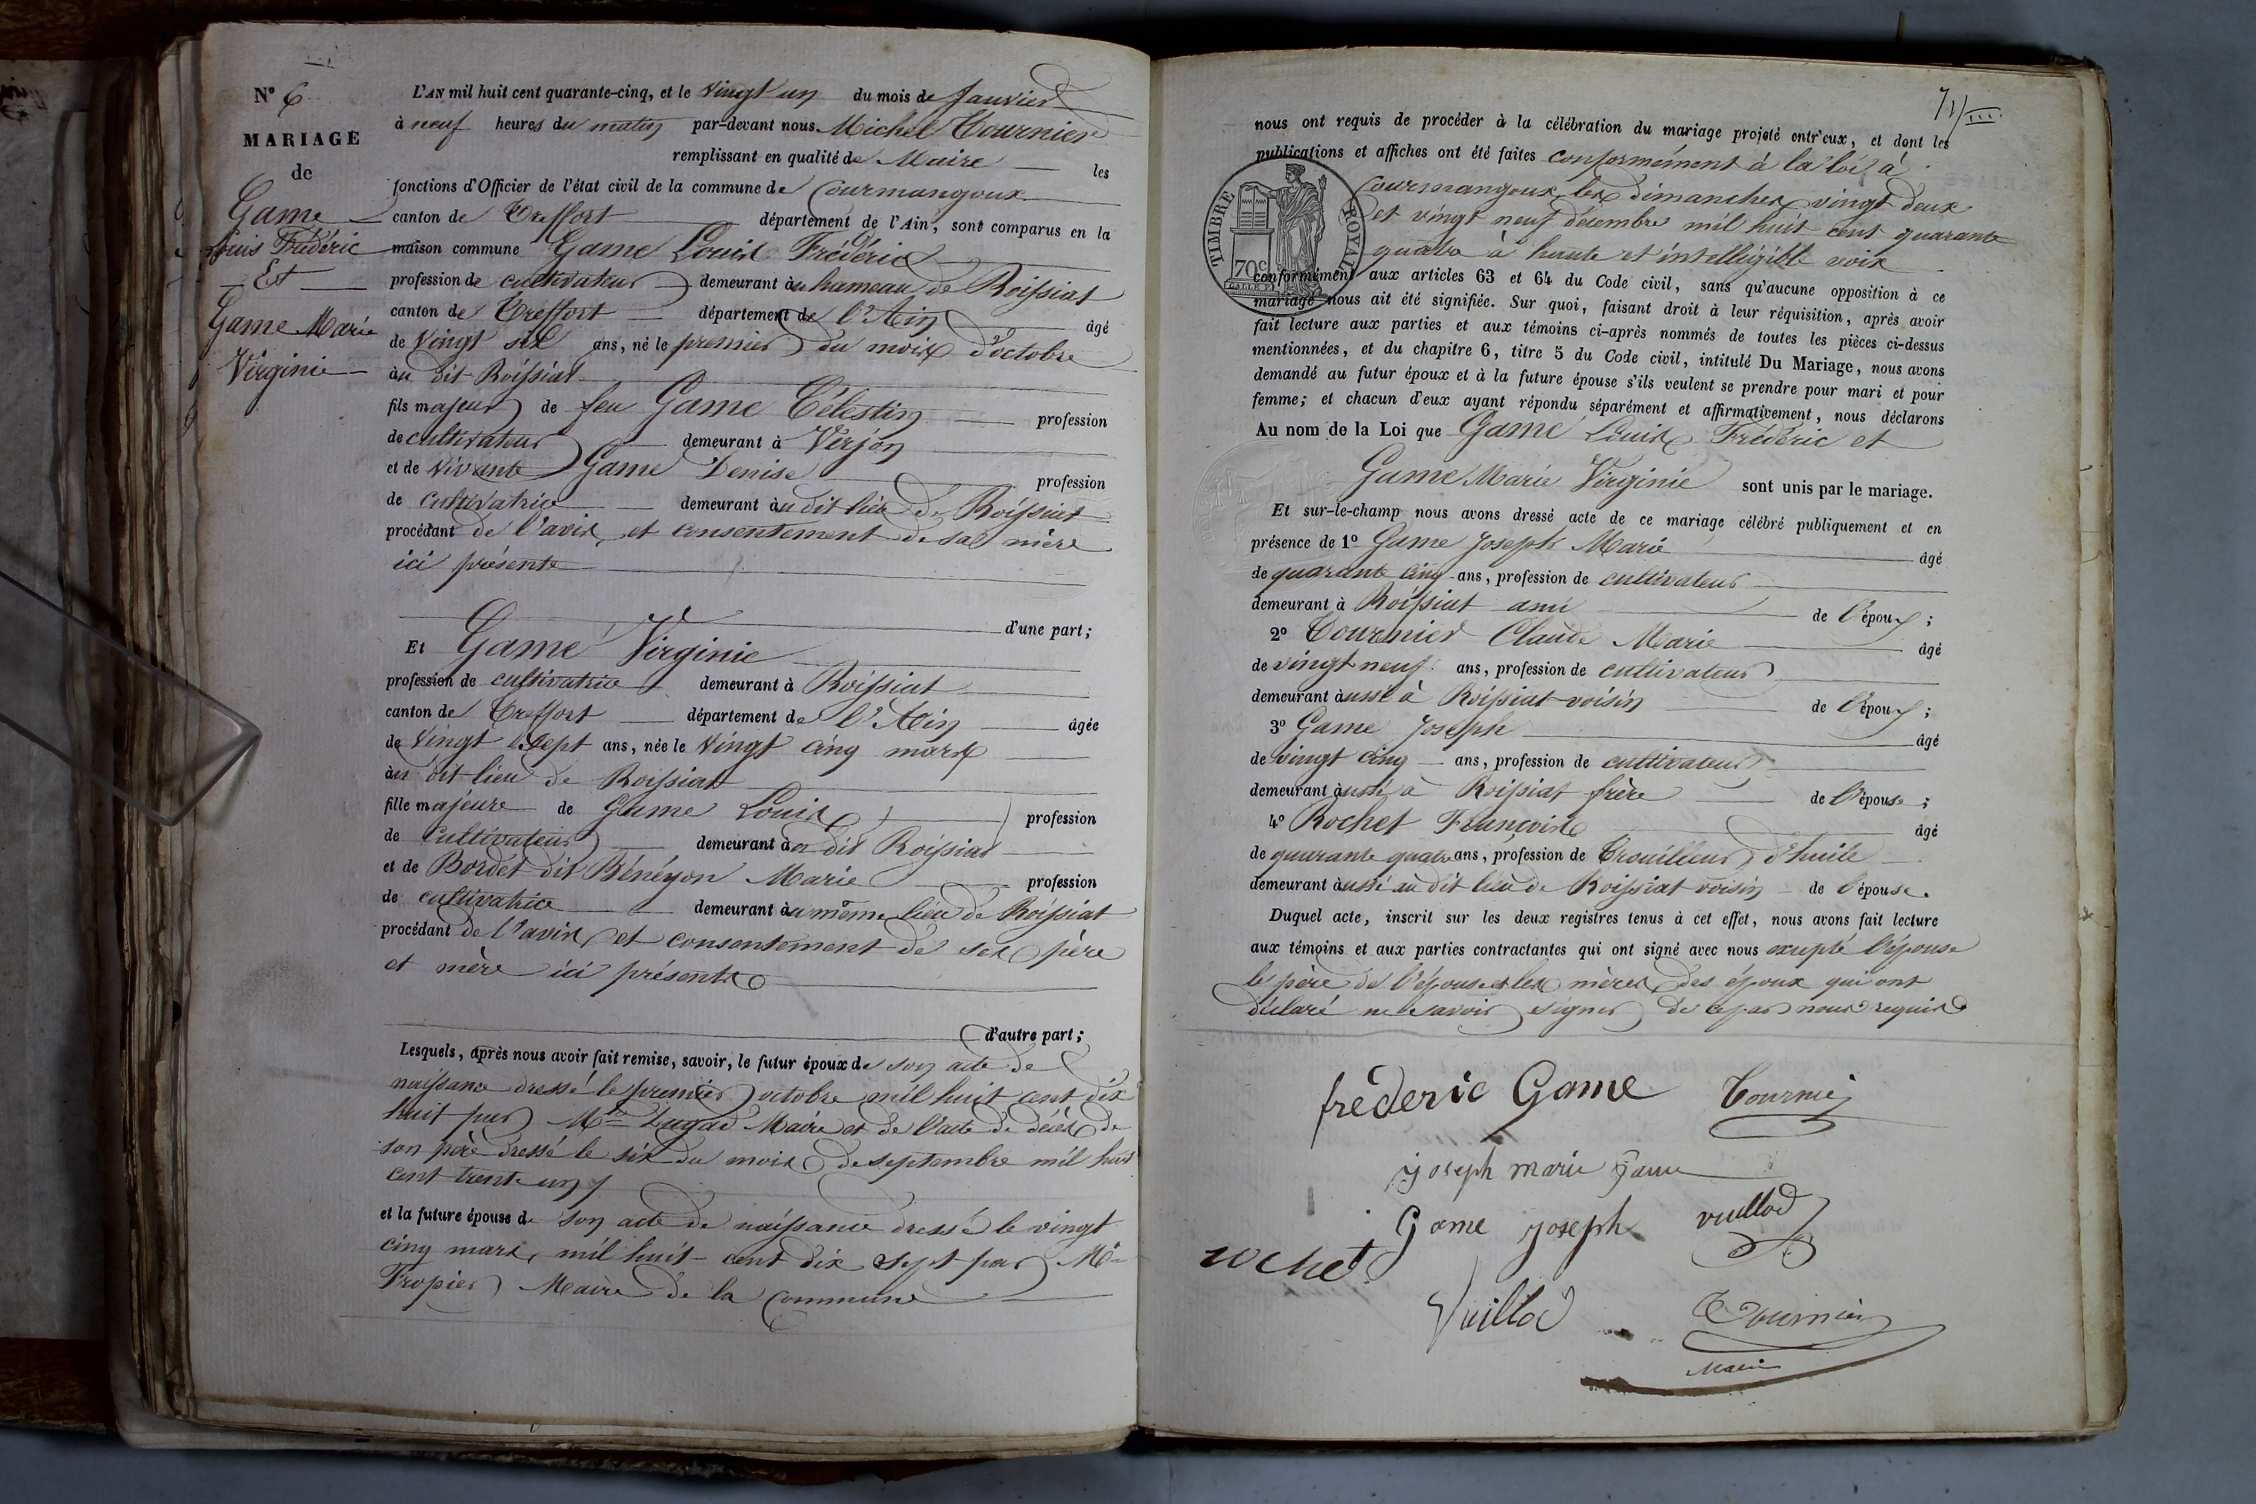 N° 6
MARIAGE
de
Game
Louis Frédéric
Et
Game Marie
Virginie
L'AN mil huit cent quarante-cinq, et le vingt un du mois de Janvier
à neuf heures du matin par-devant nous Michel Tournier
remplissant en qualité de Maire les
fonctions d'Officier de l'état civil de la commune de Courmangoux
canton de Treffort département de l'Ain, sont comparus en la
maison commune Game Louis Frédéric
profession de cultivateur demeurant au hameau de Roissiat
canton de Treffort département de l'Ain âgé
de vingt six ans, né le premier du mois d'octobre
au dit Roissiat
fils majeur de feu Game Célestin profession
de cultivateur demeurant à Verjon
et de vivante Game Denise profession
de cultivatrice demeurant au dit lieu de Roissiat
procédant de l'avis et consentement de sa mère
ici présente
d'une part;
Et Game Virginie
profession de cultivatrice demeurant à Roissiat
canton de Treffort département de l'Ain âgée
de vingt sept ans, née le vingt cinq mars
au dit lieu de Roissiat
fille majeure de Game Louis profession
de cultivateur demeurant au dit Roissiat
et de Bordet dit Bénéyon Marie profession
de cultivatrice demeurant au même lieu de Roissiat
procédant de l'avis et consentement de ses père
et mère ici présents
d'autre part;
Lesquels, après nous avoir fait remise, savoir, le futur époux de son acte de
naissance dressé le premier octobre mil huit cent dix
huit par Mr. Maire et de l'acte de décès de
son père dressé le six du mois de septembre mil huit
cent trente un
et la future épouse de son acte de naissance dressé le vingt
cinq mars mil huit cent dix sept par Mr.
Tropier Maire de la commune
71/III
nous ont requis de procéder à la célébration du mariage projeté entr'eux, et dont les
publications et affiches ont été faites conformément à la loi à
Courmangoux les dimanches vingt deux
et vingt neuf décembre mil huit cent quarante
quatre à haute et intelligible voix
TIMBRE ROYAL
70c
conformément aux articles 63 et 64 du Code civil, sans qu'aucune opposition à ce
mariage nous ait été signifiée. Sur quoi, faisant droit à leur réquisition, après avoir
fait lecture aux parties et aux témoins ci-après nommés de toutes les pièces ci-dessus
mentionnées, et du chapitre 6, titre 5 du Code civil, intitulé Du Mariage, nous avons
demandé au futur époux et à la future épouse s'ils veulent se prendre pour mari et pour
femme; et chacun d'eux ayant répondu séparément et affirmativement, nous déclarons
Au nom de la Loi que Game Louis Frédéric et
Game Marie Virginie sont unis par le mariage.
Et sur-le-champ nous avons dressé acte de ce mariage célébré publiquement et en
présence de 1° Game Joseph Marie âgé
de quarante cinq ans, profession de cultivateur
demeurant à Roissiat ami de l'époux;
2° Tournier Claude Marie âgé
de vingt neuf ans, profession de cultivateur
demeurant aussi à Roissiat voisin de l'époux;
3° Game Joseph âgé
de vingt cinq ans, profession de cultivateur
demeurant aussi à Roissiat frère de l'épouse;
4° Rochet François âgé
de quarante quatre ans, profession de Trouilleur d'huile
demeurant aussi au dit lieu de Roissiat voisin de l'épouse.
Duquel acte, inscrit sur les deux registres tenus à cet effet, nous avons fait lecture
aux témoins et aux parties contractantes qui ont signé avec nous excepté l'épouse
le père de l'épouse et les mères des époux qui ont
déclaré ne savoir signer de ce par nous requis
frédéric Game Tournier
joseph marie Game
Game joseph vuillod
rochet
Vuillod Tournier
Maire